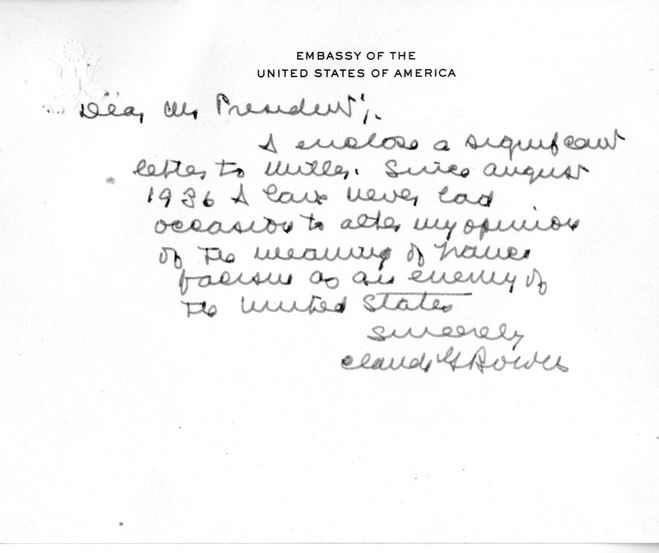 EMBASSY OF THE
UNITED STATES OF AMERICA
Dear Mr President;
I enclose a significant
letter to Hitler. Since August
1936 I have never had
occasion to alter my opinion
of the meaning of Franco
facism as an enemy of
the United States
Sincerely
Claude G Bowers